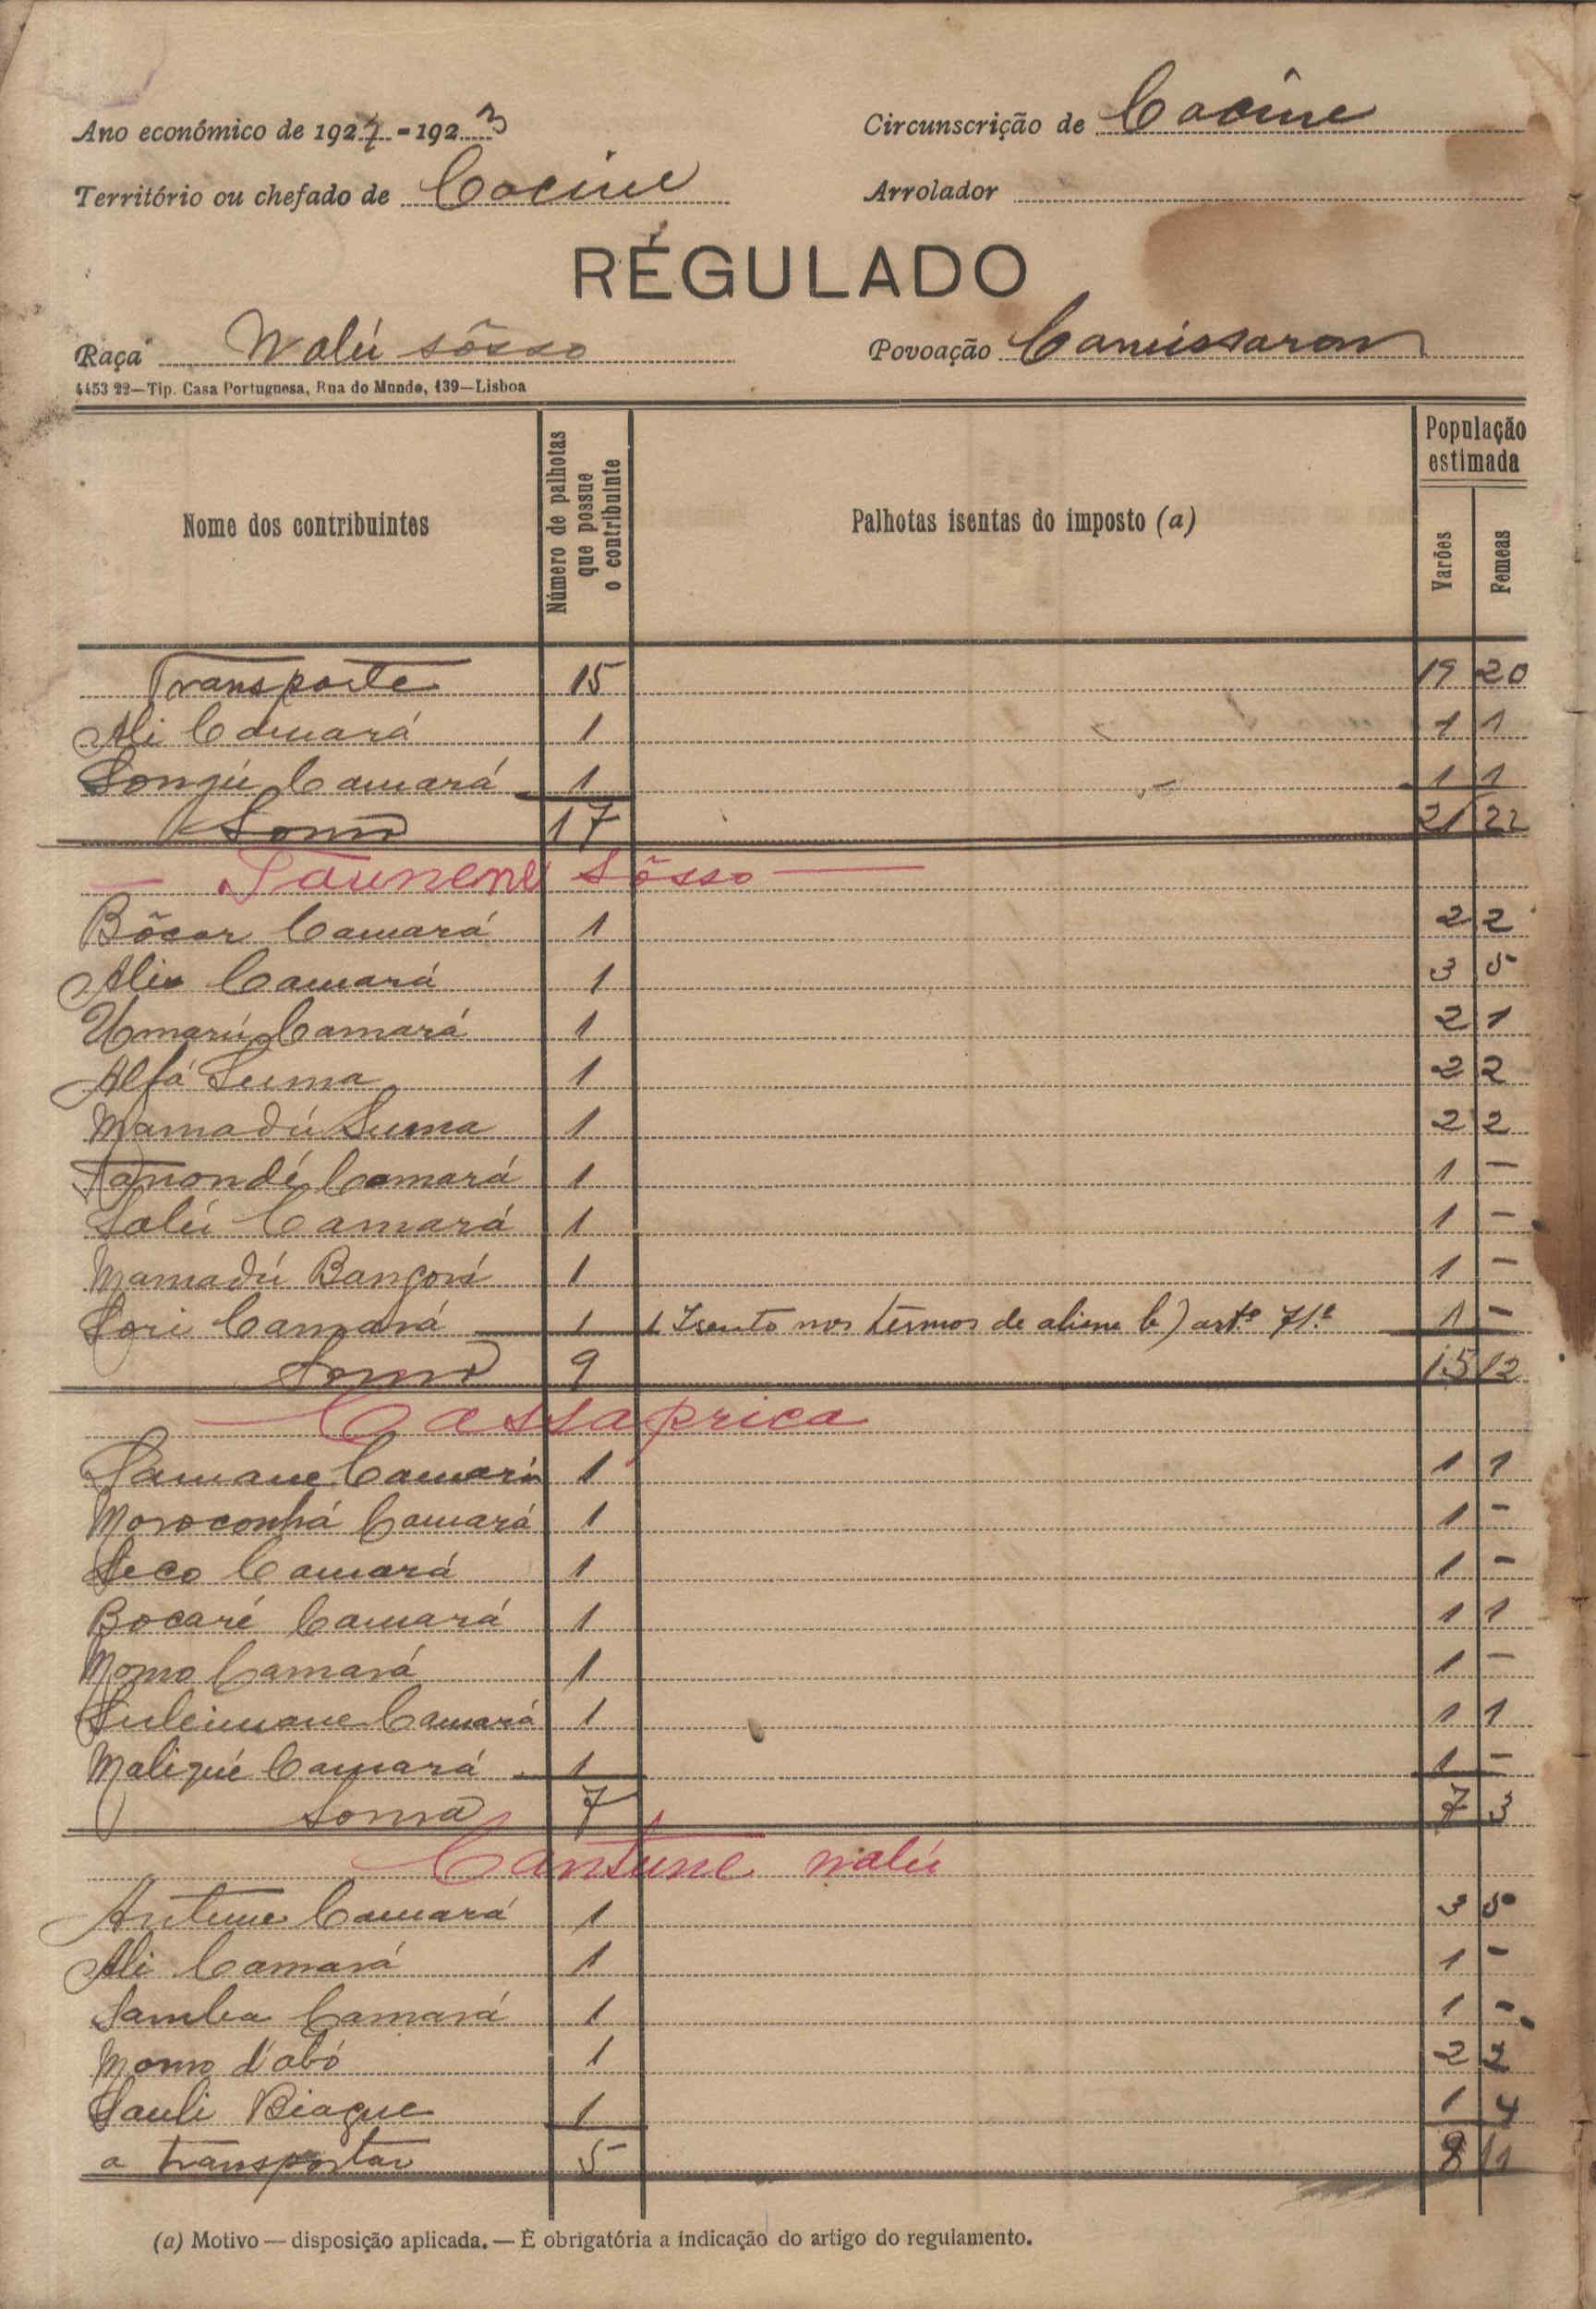 Ano económico de 1922 - 1923 Circunscrição de Cacine
Território ou chefado de Cacine Arrolador
RÉGULADO
Raça Nalú sôsso Povoação Camissaron
4453 22—Tip. Casa Portuguesa, Rua do Mundo, 139—Lisboa
Nome dos contribuintes
Número de palhotas que possue o contribuinte
Palhotas isentas do imposto (a)
População estimada
Varões
Femeas
Transporte 15 19 20
Ali Camará 1 1 1
Camará 1 1 1
Soma 17 21 22
— Taunene Sôsso —
Bôcar Camará 1 2 2
Alia Camará 1 3 5
Umarú Camará 1 2 1
Alfá Suma 1 2 2
Mamadú Suma 1 2 2
Camará 1 1 —
Salú Camará 1 1 —
Mamadú Bangorá 1 1 —
Sori Camará 1 1 Isento nos termos de aline b) artº 71.º 1 —
Soma 9 15 12
Cassaprica
Samane Camará 1 1 1
Moroconhá Camará 1 1 -
Seco Camará 1 1 -
Bocaré Camará 1 1 1
Momo Camará 1 1 —
Suleimane Camará 1 1 1
Maliqué Camará 1 1 —
Soma 7 7 3
Cantune nalú
Antune Camará 1 3 5
Ali Camará 1 1 -
Samba Camará 1 1 -
Momo d'abó 1 2 2
Sauli Biague 1 1 4
a transportar 5 8 11
(a) Motivo — disposição aplicada. — É obrigatória a indicação do artigo do regulamento.